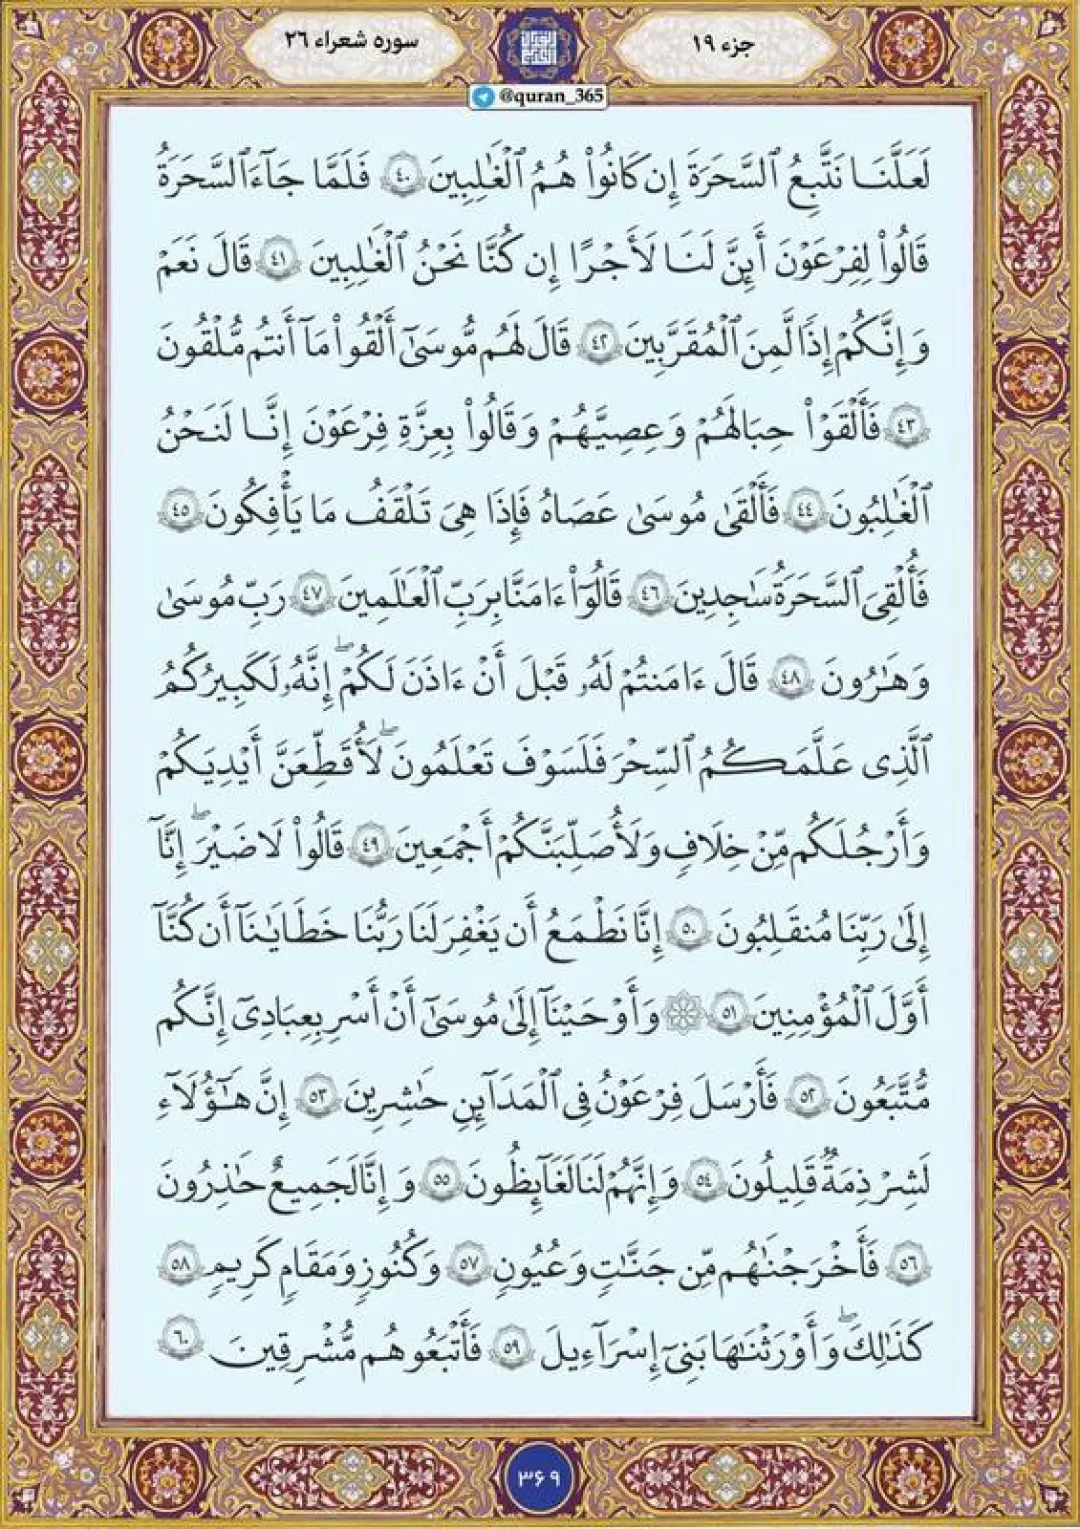 جزء ۱۹
سوره شعراء ۲۶
@quran_365
لَعَلَّنَا نَتَّبِعُ ٱلسَّحَرَةَ إِن كَانُوا۟ هُمُ ٱلْغَـٰلِبِينَ ٤٠ فَلَمَّا جَآءَ ٱلسَّحَرَةُ
قَالُوا۟ لِفِرْعَوْنَ أَئِنَّ لَنَا لَأَجْرًا إِن كُنَّا نَحْنُ ٱلْغَـٰلِبِينَ ٤١ قَالَ نَعَمْ
وَإِنَّكُمْ إِذًا لَّمِنَ ٱلْمُقَرَّبِينَ ٤٢ قَالَ لَهُم مُّوسَىٰٓ أَلْقُوا۟ مَآ أَنتُم مُّلْقُونَ
٤٣ فَأَلْقَوْا۟ حِبَالَهُمْ وَعِصِيَّهُمْ وَقَالُوا۟ بِعِزَّةِ فِرْعَوْنَ إِنَّا لَنَحْنُ
ٱلْغَـٰلِبُونَ ٤٤ فَأَلْقَىٰ مُوسَىٰ عَصَاهُ فَإِذَا هِىَ تَلْقَفُ مَا يَأْفِكُونَ ٤٥
فَأُلْقِىَ ٱلسَّحَرَةُ سَـٰجِدِينَ ٤٦ قَالُوٓا۟ ءَامَنَّا بِرَبِّ ٱلْعَـٰلَمِينَ ٤٧ رَبِّ مُوسَىٰ
وَهَـٰرُونَ ٤٨ قَالَ ءَامَنتُمْ لَهُۥ قَبْلَ أَنْ ءَاذَنَ لَكُمْ ۖ إِنَّهُۥ لَكَبِيرُكُمُ
ٱلَّذِى عَلَّمَكُمُ ٱلسِّحْرَ فَلَسَوْفَ تَعْلَمُونَ ۖ لَأُقَطِّعَنَّ أَيْدِيَكُمْ
وَأَرْجُلَكُم مِّنْ خِلَافٍ وَلَأُصَلِّبَنَّكُمْ أَجْمَعِينَ ٤٩ قَالُوا۟ لَا ضَيْرَ ۖ إِنَّآ
إِلَىٰ رَبِّنَا مُنقَلِبُونَ ٥٠ إِنَّا نَطْمَعُ أَن يَغْفِرَ لَنَا رَبُّنَا خَطَايَـٰنَآ أَن كُنَّآ
أَوَّلَ ٱلْمُؤْمِنِينَ ٥١ ۞ وَأَوْحَيْنَآ إِلَىٰ مُوسَىٰٓ أَنْ أَسْرِ بِعِبَادِىٓ إِنَّكُم
مُّتَّبَعُونَ ٥٢ فَأَرْسَلَ فِرْعَوْنُ فِى ٱلْمَدَآئِنِ حَـٰشِرِينَ ٥٣ إِنَّ هَـٰٓؤُلَآءِ
لَشِرْذِمَةٌ قَلِيلُونَ ٥٤ وَإِنَّهُمْ لَنَا لَغَآئِظُونَ ٥٥ وَإِنَّا لَجَمِيعٌ حَـٰذِرُونَ
٥٦ فَأَخْرَجْنَـٰهُم مِّن جَنَّـٰتٍ وَعُيُونٍ ٥٧ وَكُنُوزٍ وَمَقَامٍ كَرِيمٍ ٥٨
كَذَٰلِكَ ۖ وَأَوْرَثْنَـٰهَا بَنِىٓ إِسْرَٰٓءِيلَ ٥٩ فَأَتْبَعُوهُم مُّشْرِقِينَ ٦٠
۳۶۹